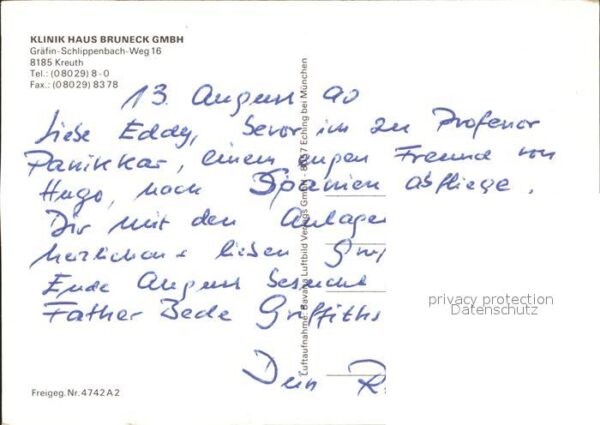 KLINIK HAUS BRUNECK GMBH
Gräfin-Schlippenbach-Weg 16
8185 Kreuth
Tel.: (08029) 8-0
Fax.: (08029) 8378
13. August 90
Liebe Eddy, bevor ich zu Professor
Panikkar, einem engen Freund von
Hugo, nach Spanien abfliege,
Dir mit den Anlagen
herzlichen + lieben Gruß
Ende August besucht
Father Bede Griffiths
Dein R
Freigeg. Nr. 4742 A 2
Luftaufnahme: Bavaria Luftbild Verlags GmbH - 8057 Eching bei München
privacy protection
Datenschutz